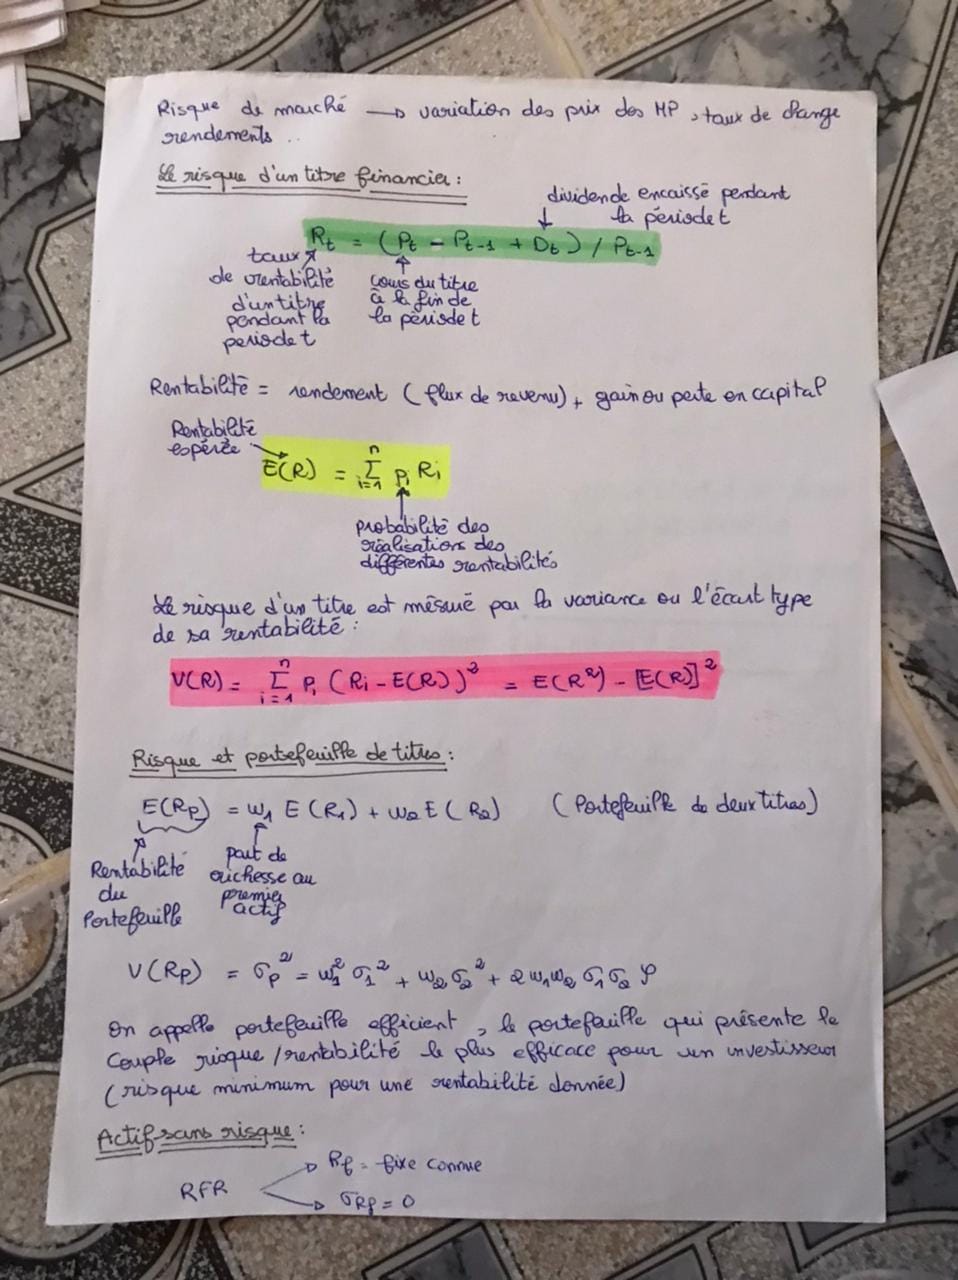 Risque de marché → variation des prix des MP, taux de change
rendements ..
Le risque d'un titre financier :
dividende encaissé pendant
la période t
Rt = (Pt - Pt-1 + Dt) / Pt-1
taux
de rentabilité
d'un titre
pendant la
periode t
cours du titre
à la fin de
la période t
Rentabilité = rendement (flux de revenu) + gain ou perte en capital
Rentabilité
espérée
E(R) = Σ pi Ri
n
i=1
probabilité des
réalisations des
différentes rentabilités
Le risque d'un titre est mésuré par la variance ou l'écart type
de sa rentabilité :
V(R) = Σ Pi (Ri - E(R))² = E(R²) - [E(R)]²
n
i=1
Risque et portefeuille de titres :
E(Rp) = w1 E(R1) + w2 E(R2) (Portefeuille de deux titres)
Rentabilité
du
Portefeuille
part de
richesse au
premier
actif
V(Rp) = σp² = w1² σ1² + w2 σ2² + 2 w1w2 σ1σ2 φ
On appelle portefeuille efficient, le portefeuille qui présente le
Couple risque/rentabilité le plus efficace pour un investisseur
(risque minimum pour une rentabilité donnée)
Actif sans risque :
RFR
Rf = fixe connue
σRf = 0